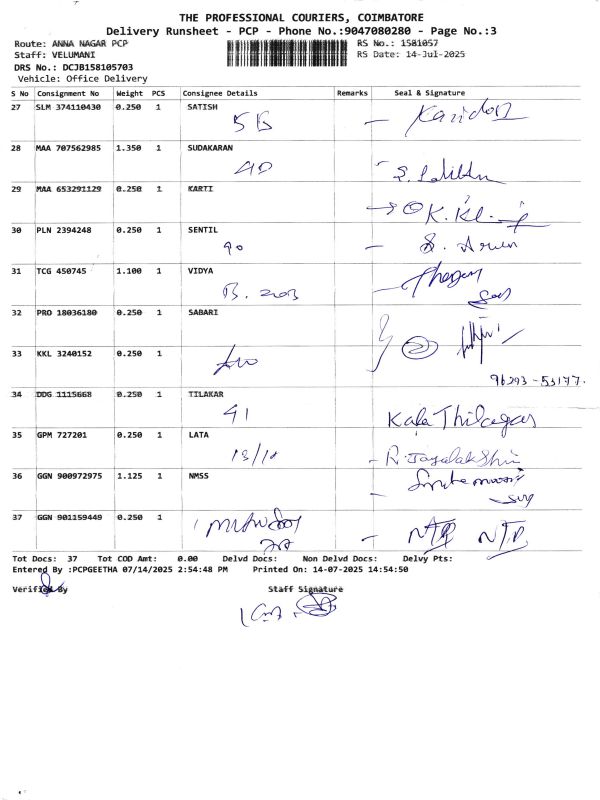 THE PROFESSIONAL COURIERS, COIMBATORE
Delivery Runsheet - PCP - Phone No.:9047080280 - Page No.:3
Route: ANNA NAGAR PCP RS No.: 1581057
Staff: VELUMANI RS Date: 14-Jul-2025
DRS No.: DCJB158105703
Vehicle: Office Delivery
S No Consignment No Weight PCS Consignee Details Remarks Seal & Signature
27 SLM 374110430 0.250 1 SATISH
5B
28 MAA 707562985 1.350 1 SUDAKARAN
29 MAA 653291129 0.250 1 KARTI
30 PLN 2394248 0.250 1 SENTIL
90 S. Arun
31 TCG 450745 1.100 1 VIDYA
32 PRO 18036180 0.250 1 SABARI
33 KKL 3240152 0.250 1
96293-53177.
34 DDG 1115668 0.250 1 TILAKAR
41 Kala Thilagar
35 GPM 727201 0.250 1 LATA
13/10 R. Jayalakshmi
36 GGN 900972975 1.125 1 NMSS
37 GGN 901159449 0.250 1
Tot Docs: 37 Tot COD Amt: 0.00 Delvd Docs: Non Delvd Docs: Delvy Pts:
Entered By :PCPGEETHA 07/14/2025 2:54:48 PM Printed On: 14-07-2025 14:54:50
Verified By Staff Signature